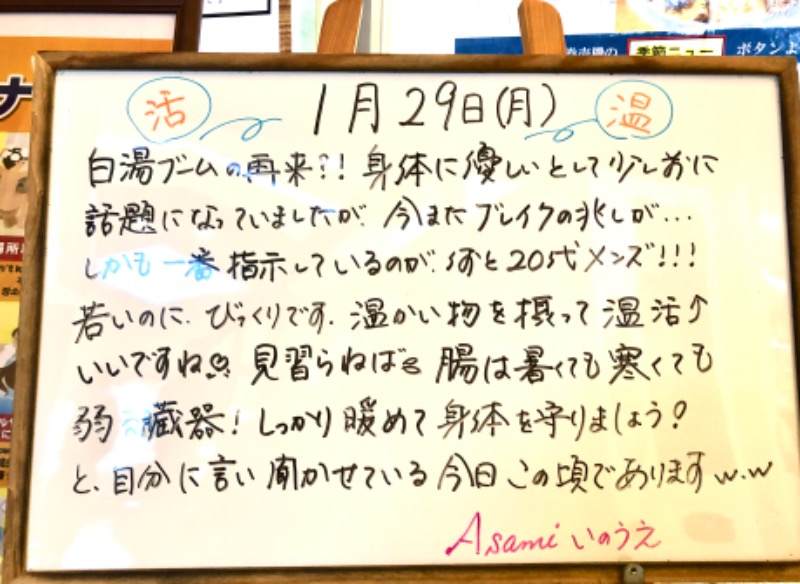 活 1月29日(月) 温
白湯ブームの再来?! 身体に優しいとして少しまえに
話題になっていましたが、今またブレイクの兆しが…
しかも一番指示しているのが、何と20代メンズ!!!
若いのに、びっくりです。温かい物を摂って温活↑
いいですね 見習らねば 腸は暑くても寒くても
弱い臓器! しっかり暖めて身体を守りましょう?
と、自分に言い聞かせている今日この頃でありますw.w
Asamiいのうえ
季節ニュー
ボタンよ
ナ